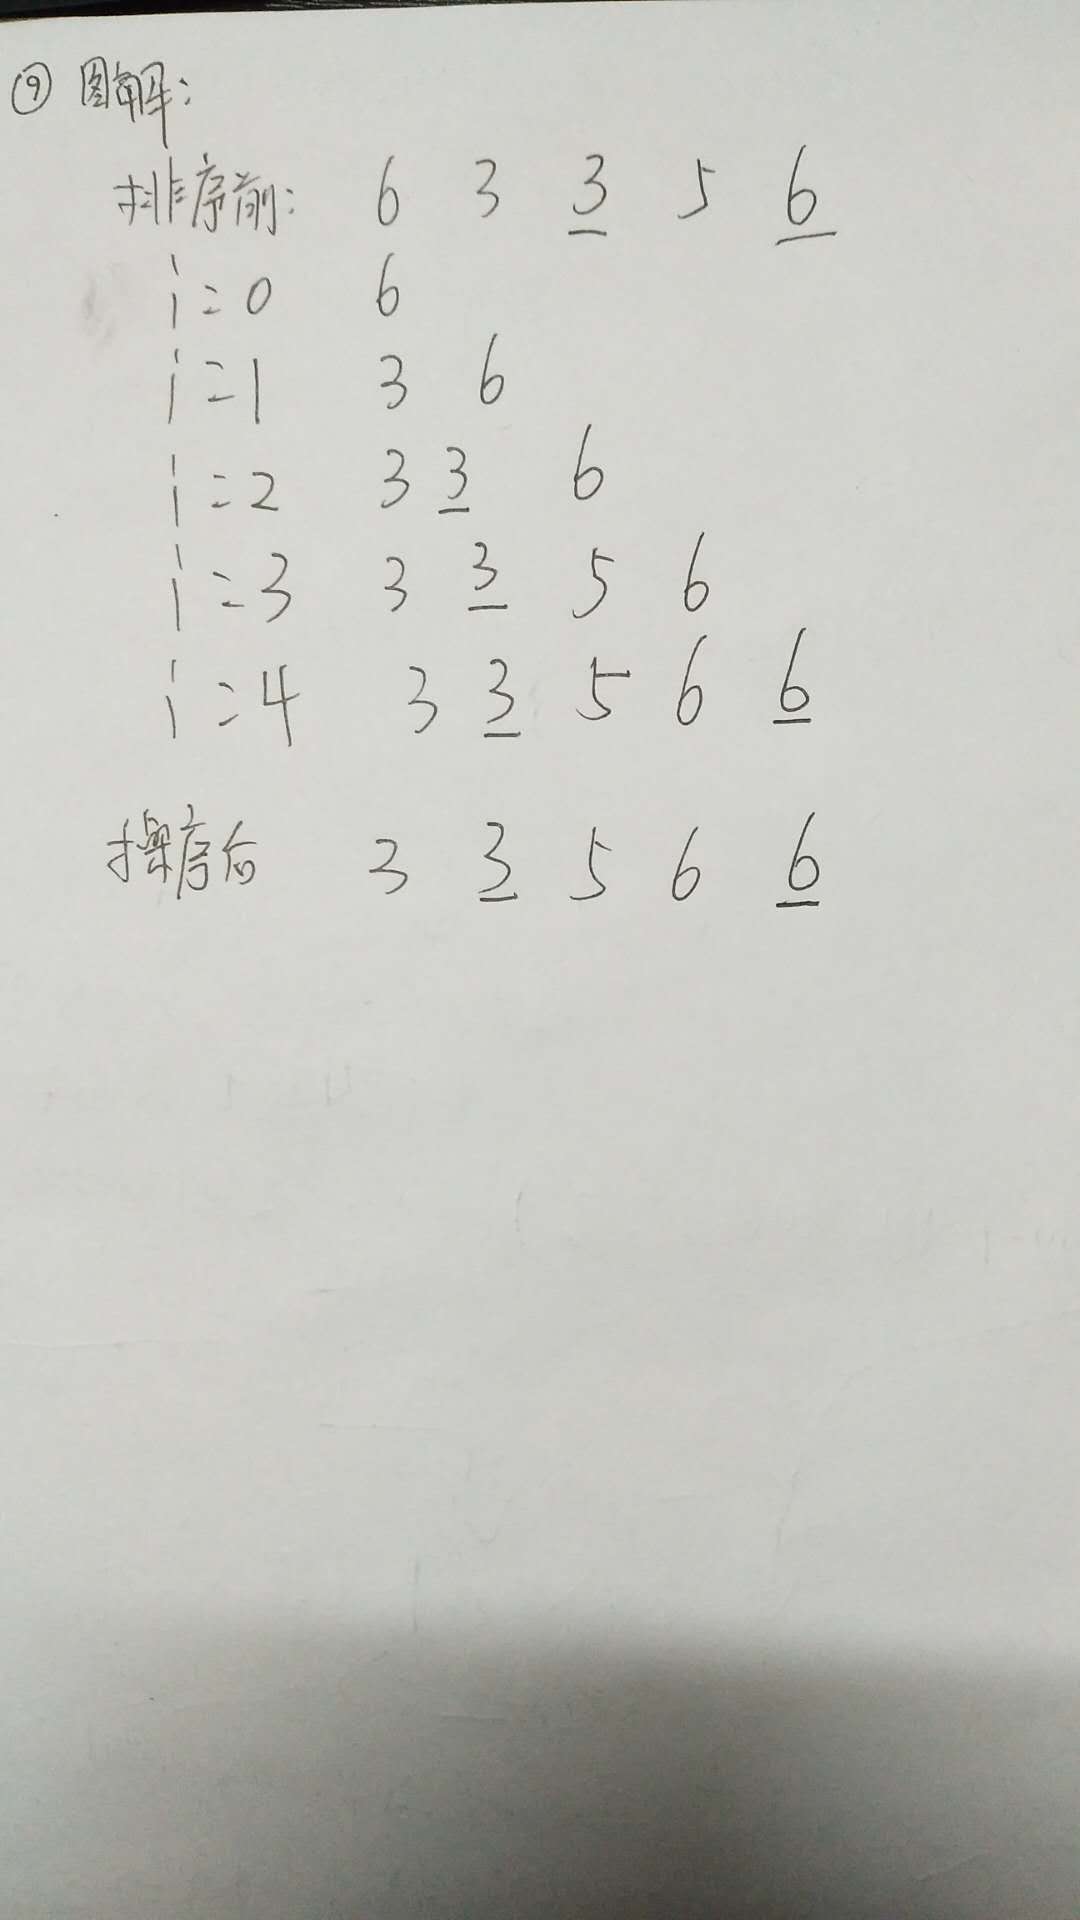 ⑨ 图解:
排序前: 6 3 3 5 6
i=0 6
i=1 3 6
i=2 3 3 6
i=3 3 3 5 6
i=4 3 3 5 6 6
排序后 3 3 5 6 6